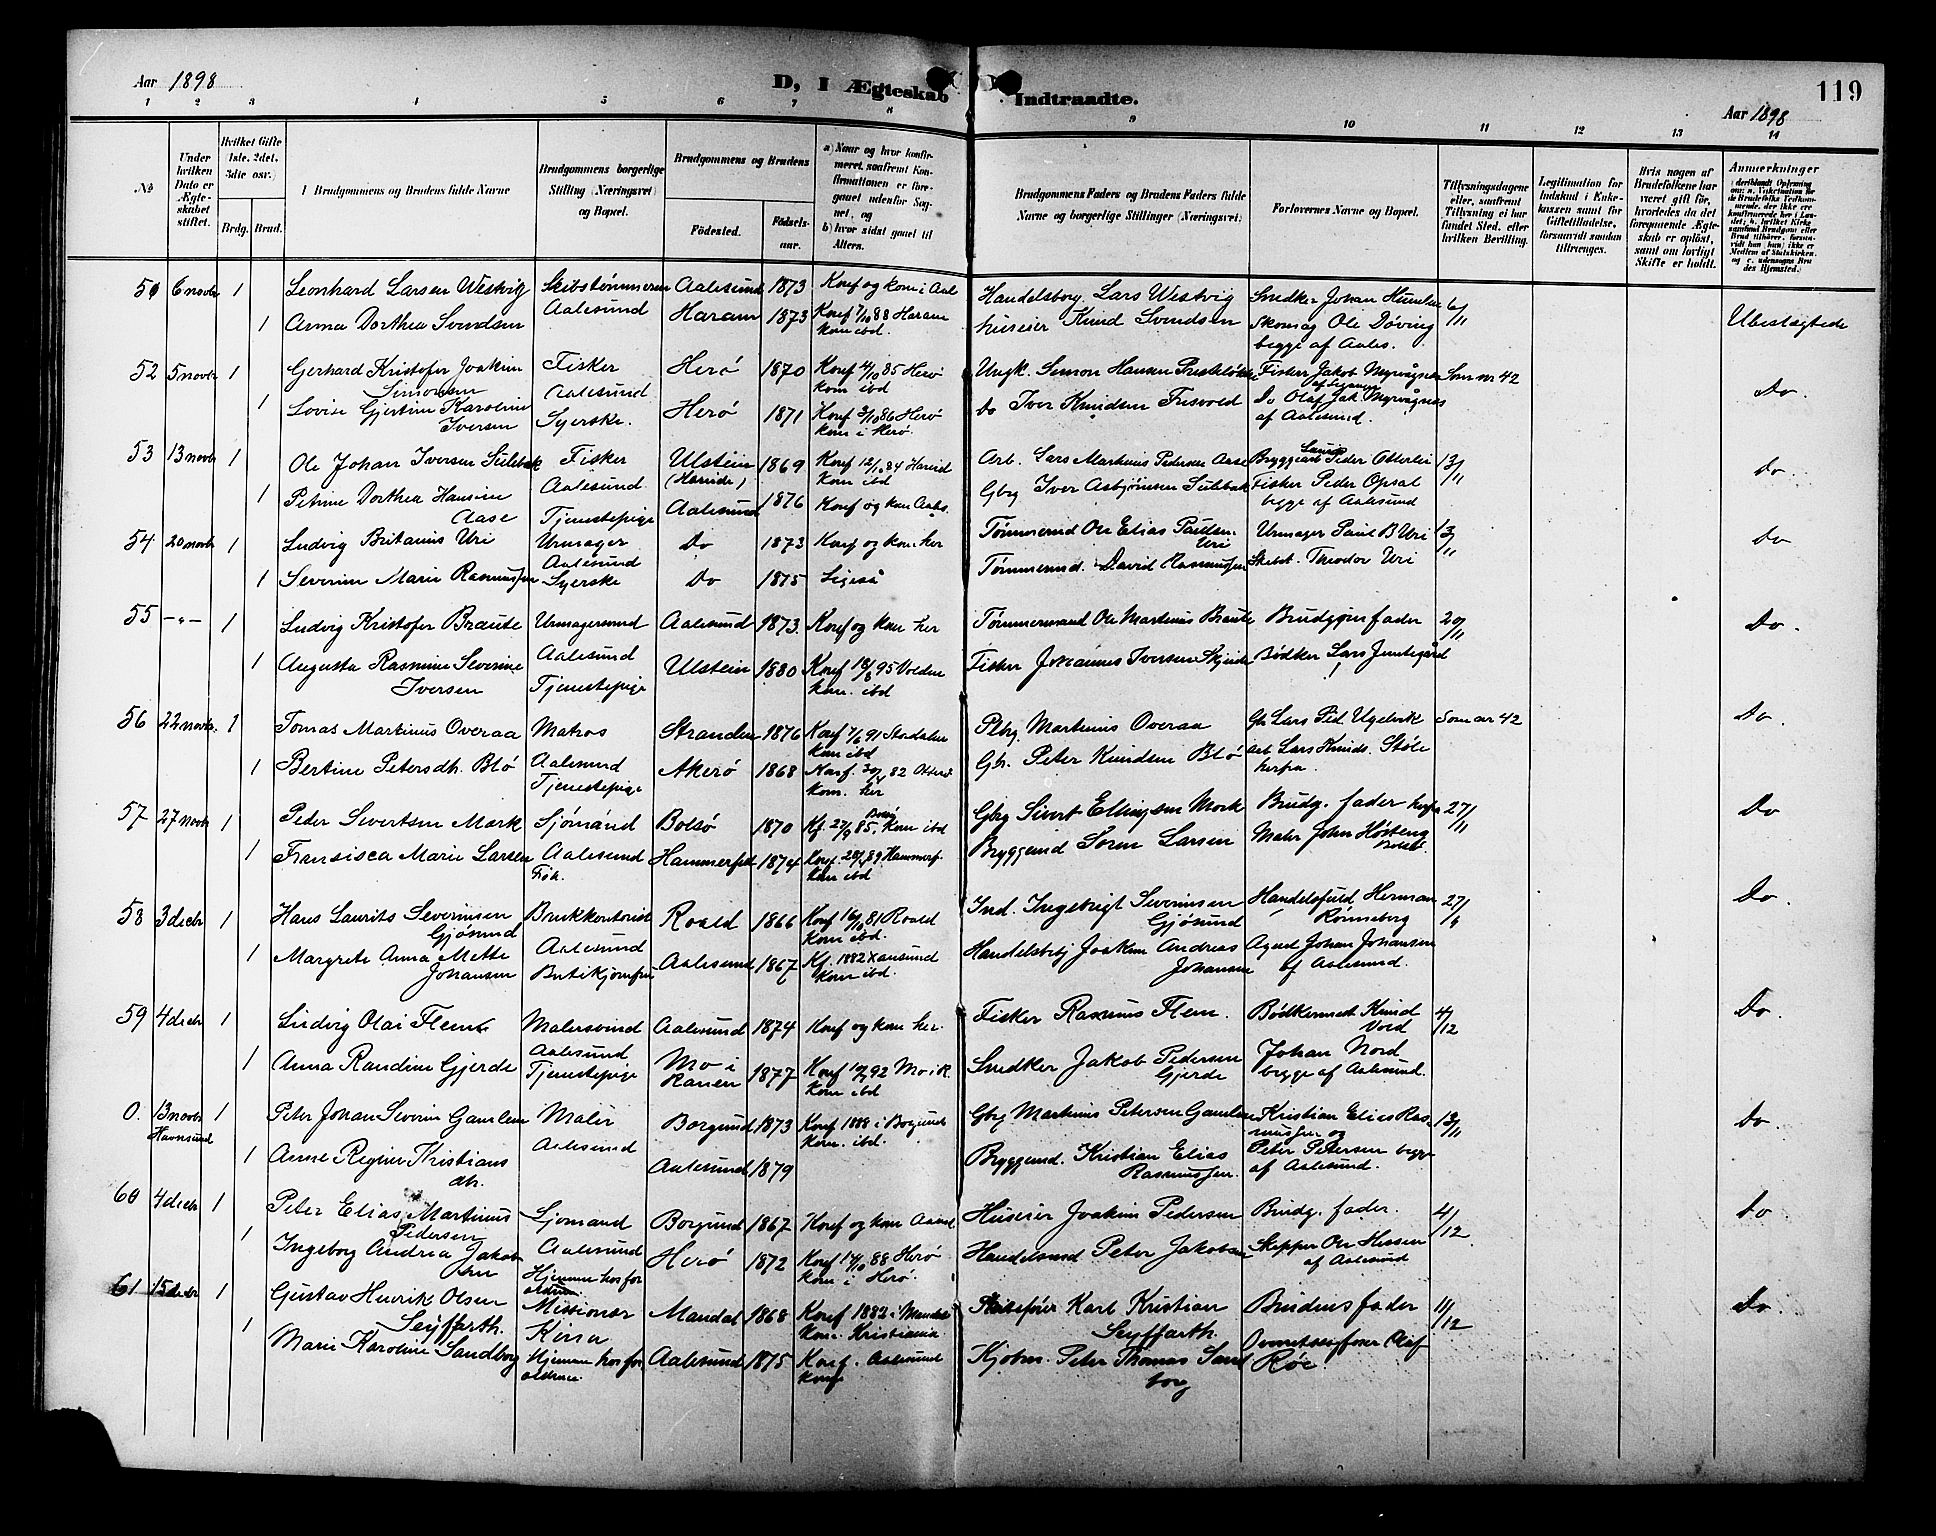 Aar 1898
D, I Ægteskab Indtraadte.
119
Aar 1898
1 2 3 4 5 6 7 8 9 10 11 12 13 14
No
Under hvilken Dato er Ægteskabet stiftet.
Hvilket Gifte 1ste, 2det, 3die osv.)
Brdg. Brud.
Brudgommens og Brudens fulde Navne
Brudgommens borgerlige Stilling (Næringsvei) og Bopæl.
Brudgommens og Brudens
Fødested.
Fødselsaar.
a) Naar og hvor konfirmeret, saafremt Konfirmationen er foregaaet udenfor Sognet, og
b) hvor sidst gaaet til Alters.
Brudgommens Faders og Brudens Faders fulde Navne og borgerlige Stillinger (Næringsvei)
Forlovernes Navne og Bopæl.
Tillysningsdagene eller, saafremt Tillysning ei har fundet Sted, efter hvilken Bevilling.
Legitimation for Indskud i Enkekassen samt for Giftetilladelse, forsaavidt saadan tiltrænges.
Hvis nogen af Brudefolkene har været gift før, hvorledes da det foregaaende Ægteskab er opløst, samt om lovligt Skifte er holdt.
Anmærkninger
6 novbr 1 Leonhard Larsen Westvig Skibstømmerm Aalesund 1873 Konf og kom i Aal Handelsborg. Lars Westvig Snedker Johan 6/11
1 Anna Dorthea Svendsen Aalesund Haram 1873 Konf 7/10 88 Haram kom ibd Huseier Knud Svendsen Skomag Ole Døving begge af Aales. Ubeslægtede
52 5 novbr 1 Gerhard Kristofer Joakim Simonsen Fisker Herø 1870 Konf 4/10 85 Herø kom ibd Ungk. Simon Hansen Fisker Jakob Myrvågnes Som nr 42
1 Lovise Gjertine Karoline Iversen Aalesund Syerske. Herø 1871 Konf 3/10 86 Herø kom i Herø. Do Iver Knudsen Frisvold Do Olaf Jak. Myrvågnes af Aalesund. Do.
53 13 novbr 1 Ole Johan Iversen Sulebak Fisker Ulstein (Hareide) 1869 Konf 12/10 84 Hareid kom ibd Arb. Lars Martinus Pedersen Aase Peder Otterlei 13/11
1 Petrine Dorthea Hansine Aase Aalesund Tjenestepige Aalesund 1876 Konf og kom Aales. Gbrg Iver Asbjørnsen Sulebak Fisker Peder Opsal begge af Aalesund Do.
54 20 novbr 1 Ludvig Britanius Uri Urmager Do 1873 Konf og kom her Tømmermd Ole Elias Paulsen Uri Urmager Paul B Uri 13/11
1 Severine Marie Rasmussen Aalesund Syerske Do 1875 Ligeså Tømmermd. David Rasmussen Skibst. Theodor Uri Do
55 —"— 1 Ludvig Kristofer Braute Urmagersvend Aalesund 1873. Konf og kom her Tømmermand Ole Martinus Braute Brudgoms fader 20/11
1 Augusta Rasmine Severine Iversen Aalesund Tjenestepige Ulstein 1880 Konf 18/8 95 Volden kom. ibd Fisker Johannes Iversen Bødker Lars Do.
56 22 novbr. 1 Tomas Martinus Overaa Matros Stranden 1876 Konf 7/6 91 Stordalen kom ibd Martinus Overaa Lars Ped Ugelvik Som nr 42
1 Bertine Petersdh. Blø Aalesund Tjenestepige Akerø 1868 82 kom. her Gbr. Peter Knudsen Blø Arb Lars Knuds. Støle herfra Do.
57 27 novbr 1 Peder Sivertsen Mork Sjømand Bolsø 1870 Kf. 27/9 85, kom ibd Gbrg Sivert Ellingsen Mork Brudg. fader herfra 27/11
1 Fransisca Marie Larsen Aalesund Frk. Hammerfest 1874 89 Hammerf. kom ibd Bryggemd Søren Larsen John Do
58 3 decbr 1 Hans Laurits Severinsen Gjøsund Roald 1866 Konf 16/10 81 Roald kom ibd. Ind. Ingebrigt Severinsen Gjøsund Herman Rønneberg 27/
1 Margrete Anna Mette Johansen Aalesund Aalesund 1867 Kf. 1882 Xansund kom ibd. Joakim Andreas Johansen Agent Johan Johansen af Aalesund. Do.
59 4 decbr 1 Ludvig Olai Flem Malersvend Aalesund 1874 Konf og kom her. Fisker Rasmus Flem. Knud Vold 4/12
1 Anna Randine Gjerde Aalesund Tjenestepige Mo i Ranen 1877 92 Mo i R. kom ibd Snedker Jakob Pedersen Gjerde Johan Nord begge af Aalesund. Do.
0. 13 novbr Havnsund 1 Peter Johan Severin Gamlem Maler Borgund 1873 Konf 1888 i Borgund kom. ibd. Gbrg Martinus Petersen Gamlem Kristian Elias Rasmussen og 13/11
1 Anne Regine Kristiansdh. Aalesund Aalesund 1879 Bryggemd. Kristian Elias Rasmussen. Peter Petersen begge af Aalesund. Do.
60 4 decbr 1 Peter Elias Martinus Pedersen Sjømand Borgund 1867 Konf og kom Aalesd Huseier Joakim Pedersen Brudg. fader. 4/12
1 Ingeborg Andrea Jakobsen Aalesund Hjemme hos foraldrene Herø 1872 88 Herø kom i Herø. Handelsmd Peter Jakobsen Skipper Ole af Aalesund Do
61 15 decbr 1 Gustav Henrik Olsen Seyffarth. Missionær Kina Mandal 1868 Konf 1882 i Mandal kom. Kristiania Karl Kristian Seyffarth. Brudens fader 11/12
1 Marie Karoline Sandborg Hjemme hos foraldrene Aalesund 1875 Konf. Aalesund kom Kjøbm. Peter Thomas Sandborg Overretssagfører Olaf Røe Do.